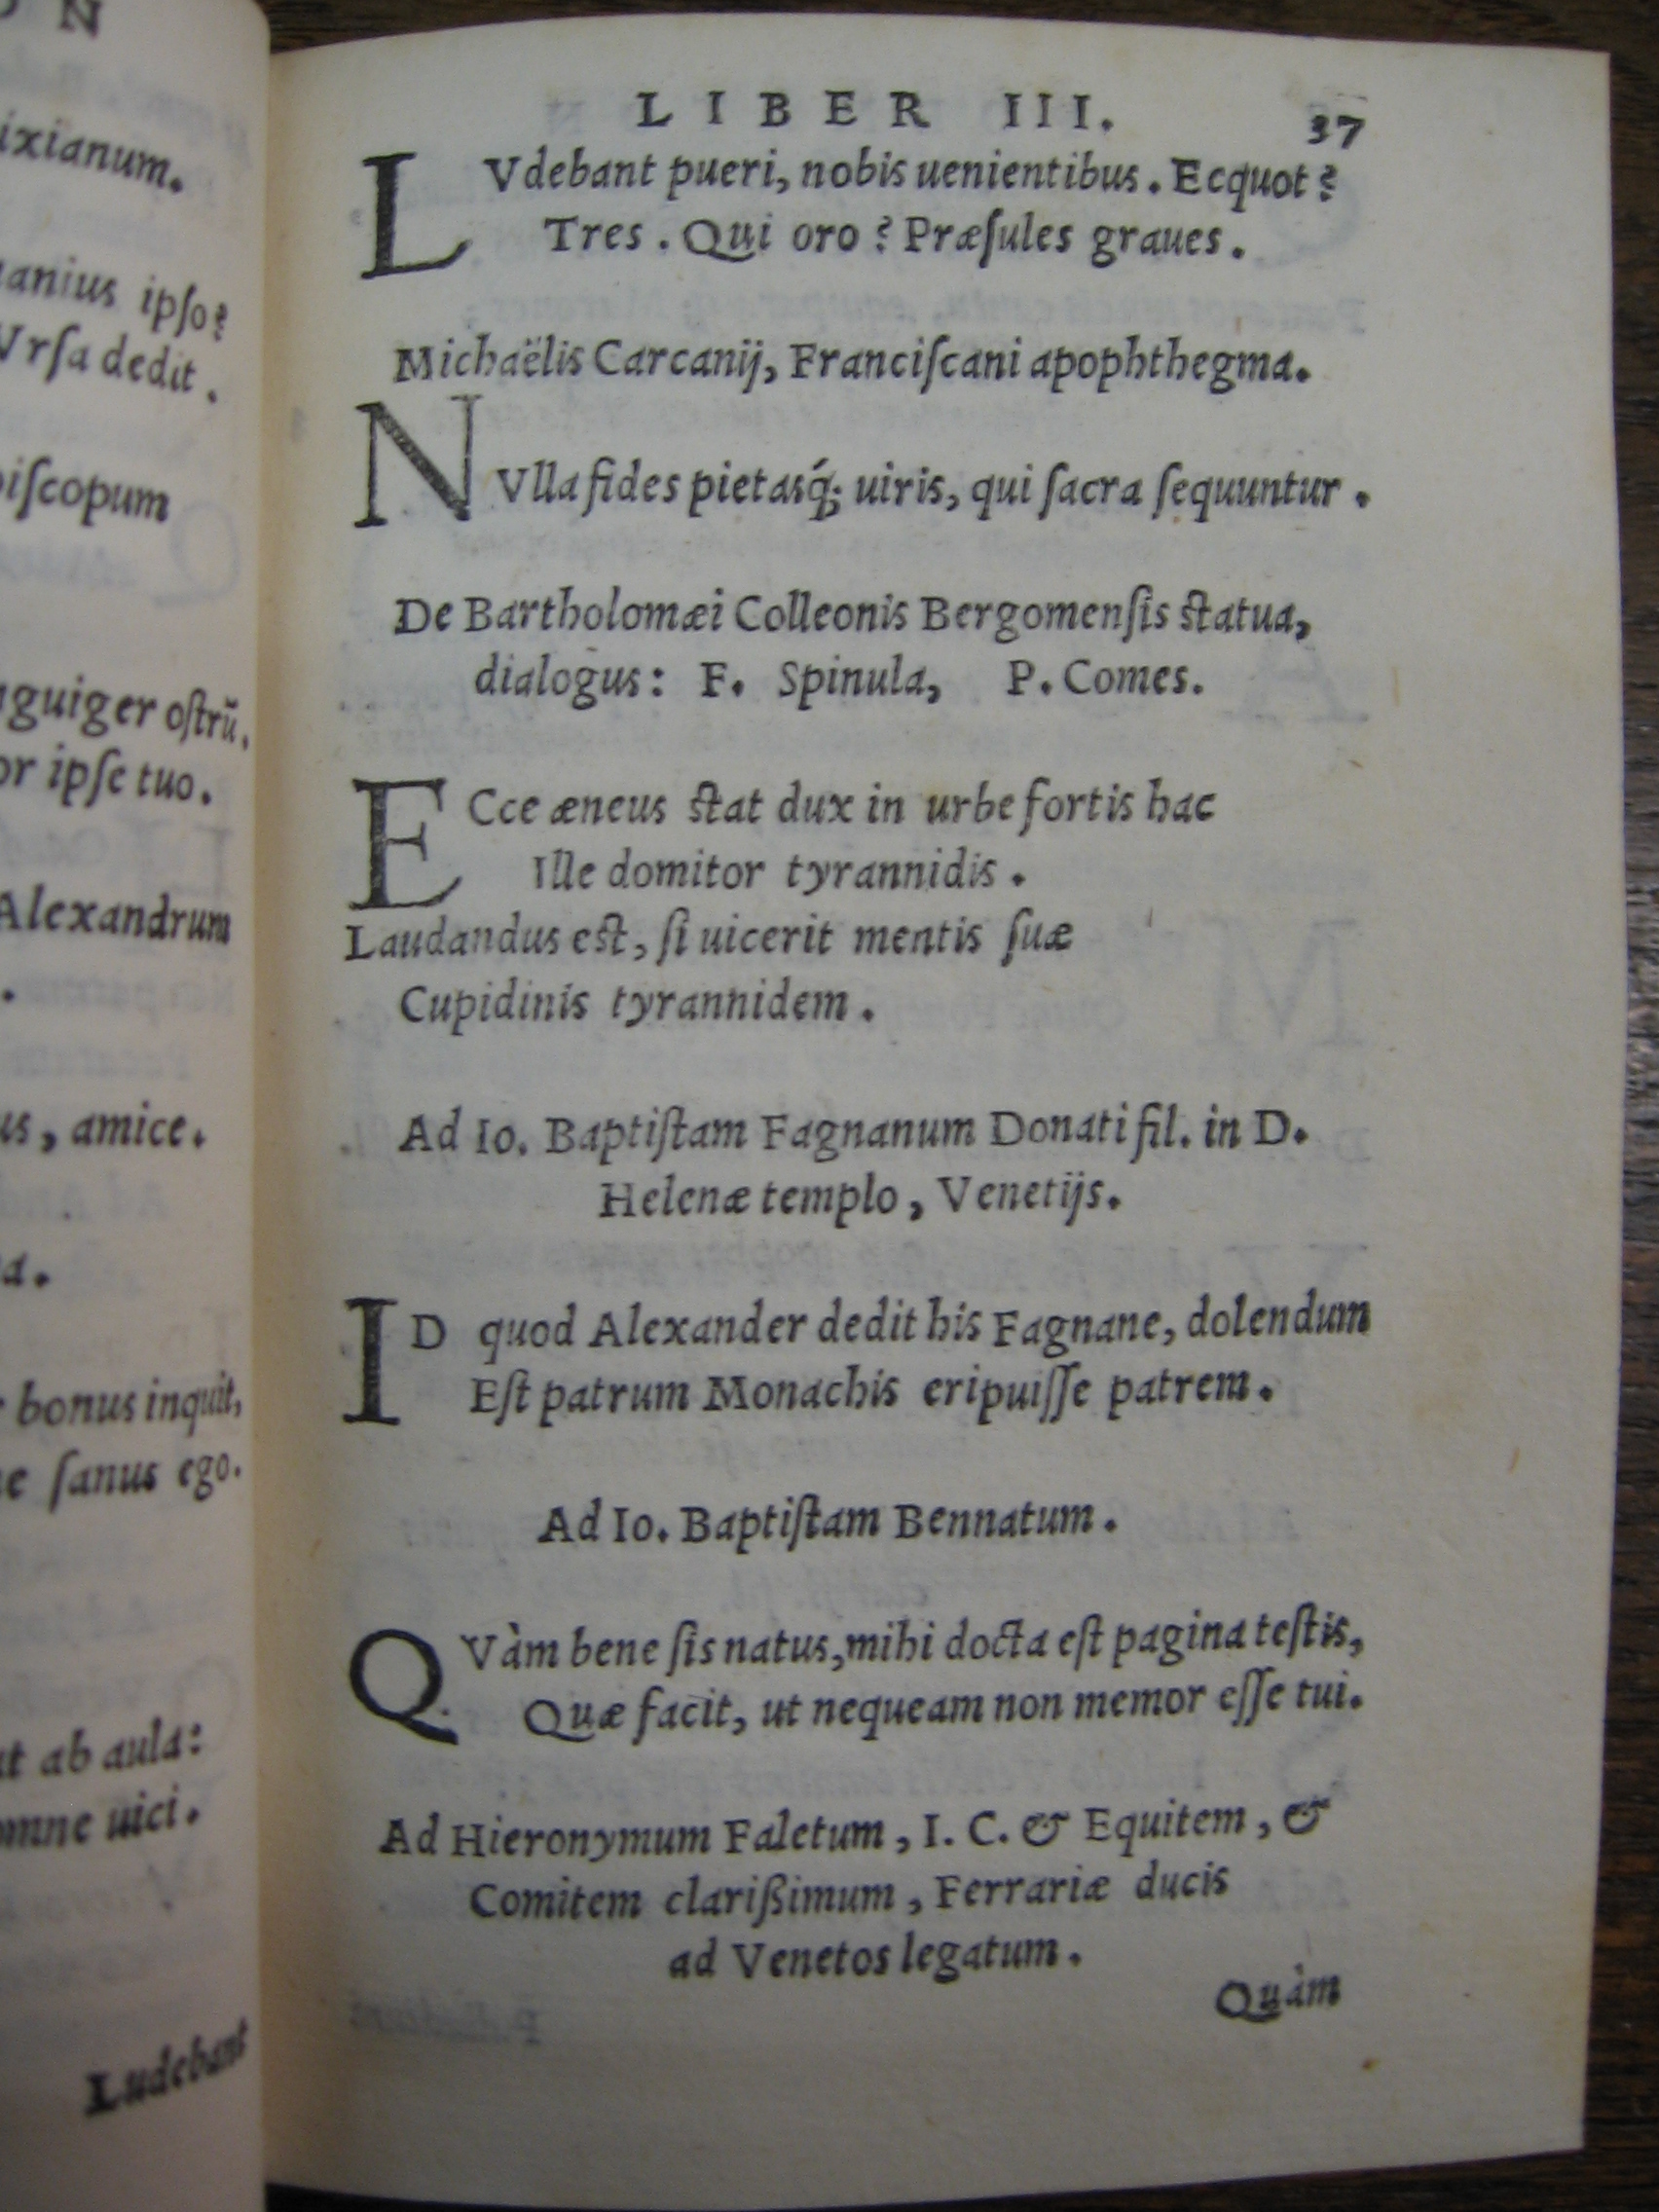 O N
ixianum.
uanius ipſo?
Vrſa dedit.
piſcopum
nguiger oſtrũ.
or ipſe tuo.
Alexandrum
us, amice.
a.
r bonus inquit,
ne ſanus ego.
ut ab aula:
omne uici.
Ludebant
LIBER III. 37
LVdebant pueri, nobis uenientibus. Ecquot?
Tres. Qui oro? Præſules graues.
Michaëlis Carcanij, Franciſcani apophthegma.
NVlla fides pietasq́; uiris, qui ſacra ſequuntur.
De Bartholomæi Colleonis Bergomenſis ſtatua,
dialogus: F. Spinula, P. Comes.
ECce æneus ſtat dux in urbe fortis hac
Ille domitor tyrannidis.
Laudandus eſt, ſi uicerit mentis ſuæ
Cupidinis tyrannidem.
Ad Io. Baptiſtam Fagnanum Donati fil. in D.
Helenæ templo, Venetijs.
ID quod Alexander dedit his Fagnane, dolendum
Eſt patrum Monachis eripuiſſe patrem.
Ad Io. Baptiſtam Bennatum.
QVàm bene ſis natus, mihi docta eſt pagina teſtis,
Quæ facit, ut nequeam non memor eſſe tui.
Ad Hieronymum Faletum, I. C. & Equitem, &
Comitem clarißimum, Ferrariæ ducis
ad Venetos legatum.
Quàm